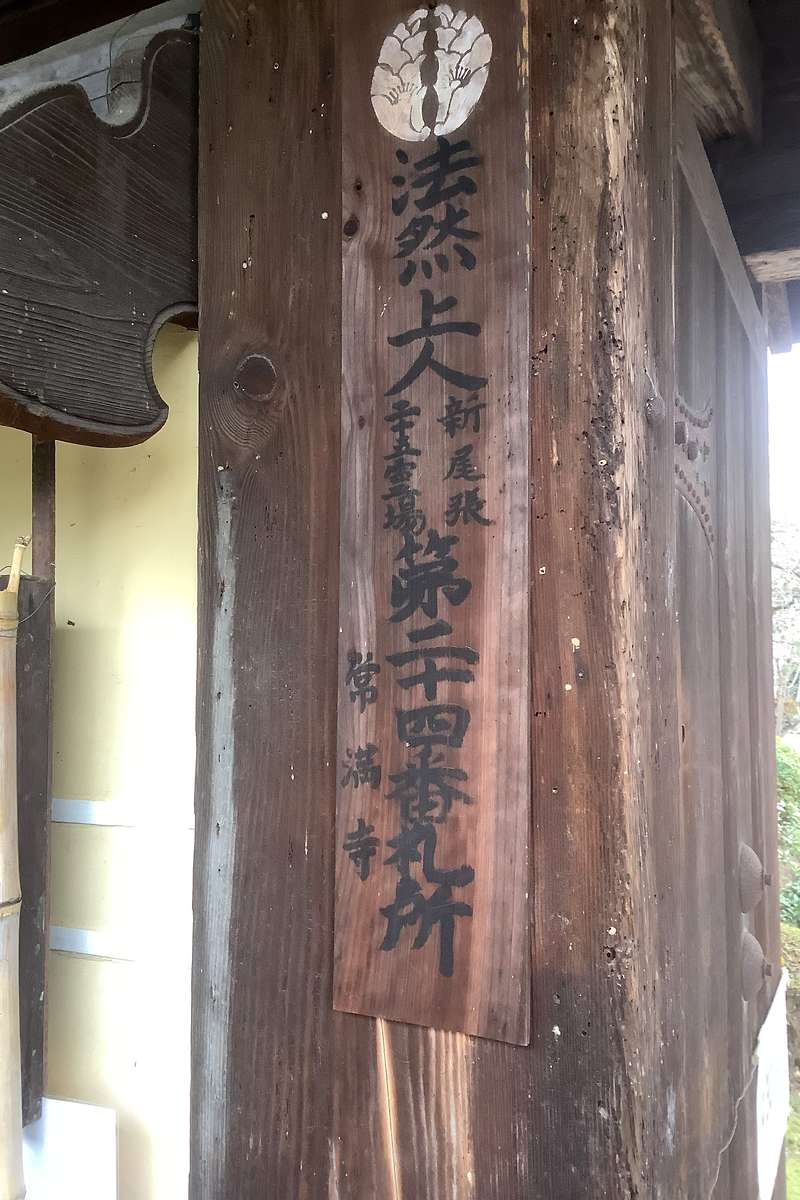 法然上人
新尾張
二十五霊場
第二十四番札所
常満寺